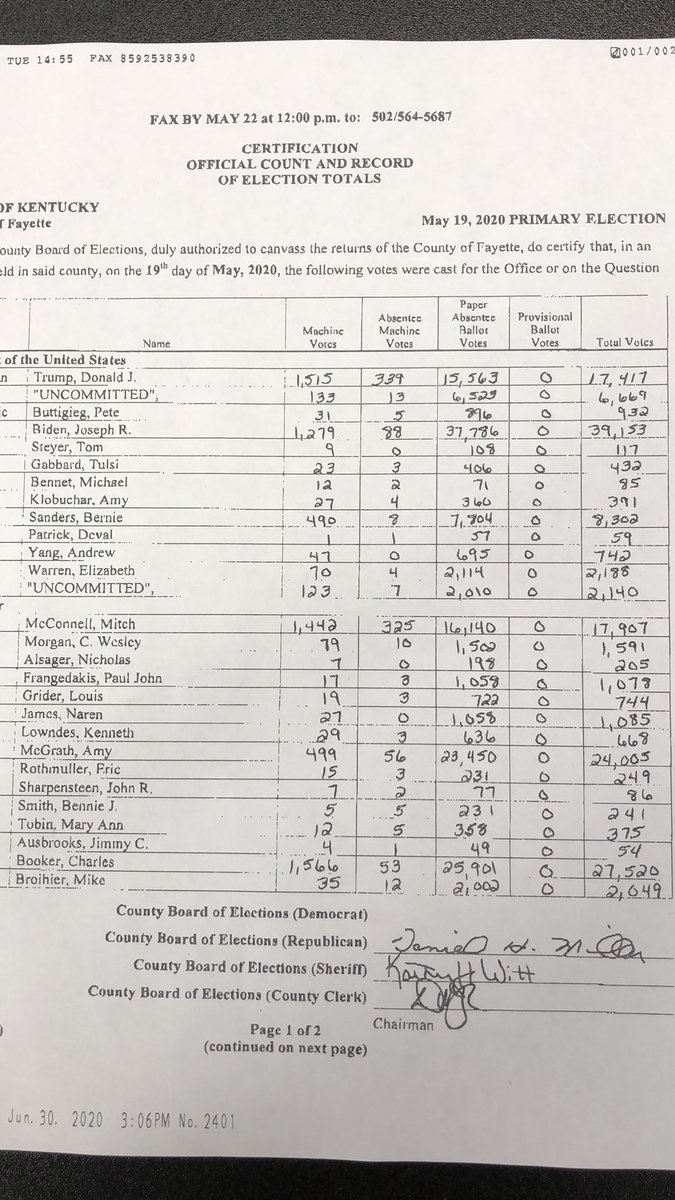 TUE 14:55 FAX 8592538390 001/002
FAX BY MAY 22 at 12:00 p.m. to: 502/564-5687
CERTIFICATION
OFFICIAL COUNT AND RECORD
OF ELECTION TOTALS
OF KENTUCKY
Fayette May 19, 2020 PRIMARY ELECTION
ounty Board of Elections, duly authorized to canvass the returns of the County of Fayette, do certify that, in an
eld in said county, on the 19th day of May, 2020, the following votes were cast for the Office or on the Question
Name Machine Votes Absentee Machine Votes Paper Absentee Ballot Votes Provisional Ballot Votes Total Votes
t of the United States
n Trump, Donald J. 1,515 339 15,563 0 17,417
"UNCOMMITTED", 133 13 6,523 0 6,669
c Buttigieg, Pete 31 5 896 0 932
Biden, Joseph R. 1,279 88 37,786 0 39,153
Steyer, Tom 9 0 108 0 117
Gabbard, Tulsi 23 3 406 0 432
Bennet, Michael 12 2 71 0 85
Klobuchar, Amy 27 4 360 0 391
Sanders, Bernie 490 8 7,804 0 8,302
Patrick, Deval 1 1 57 0 59
Yang, Andrew 47 0 695 0 742
Warren, Elizabeth 70 4 2,114 0 2,188
"UNCOMMITTED", 123 7 2,010 0 2,140
r
McConnell, Mitch 1,442 325 16,140 0 17,907
Morgan, C. Wesley 79 10 1,502 0 1,591
Alsager, Nicholas 7 0 198 0 205
Frangedakis, Paul John 17 3 1,058 0 1,078
Grider, Louis 19 3 722 0 744
James, Naren 27 0 1,058 0 1,085
Lowndes, Kenneth 29 3 636 0 668
McGrath, Amy 499 56 23,450 0 24,005
Rothmuller, Eric 15 3 231 0 249
Sharpensteen, John R. 7 2 77 0 86
Smith, Bennie J. 5 5 231 0 241
Tobin, Mary Ann 12 5 358 0 375
Ausbrooks, Jimmy C. 4 1 49 0 54
Booker, Charles 1,566 53 25,901 0 27,520
Broihier, Mike 35 12 2,002 0 2,049
County Board of Elections (Democrat)
County Board of Elections (Republican)
County Board of Elections (Sheriff) Kathy H Witt
County Board of Elections (County Clerk)
Chairman
Page 1 of 2
(continued on next page)
Jun. 30. 2020 3:06PM No. 2401